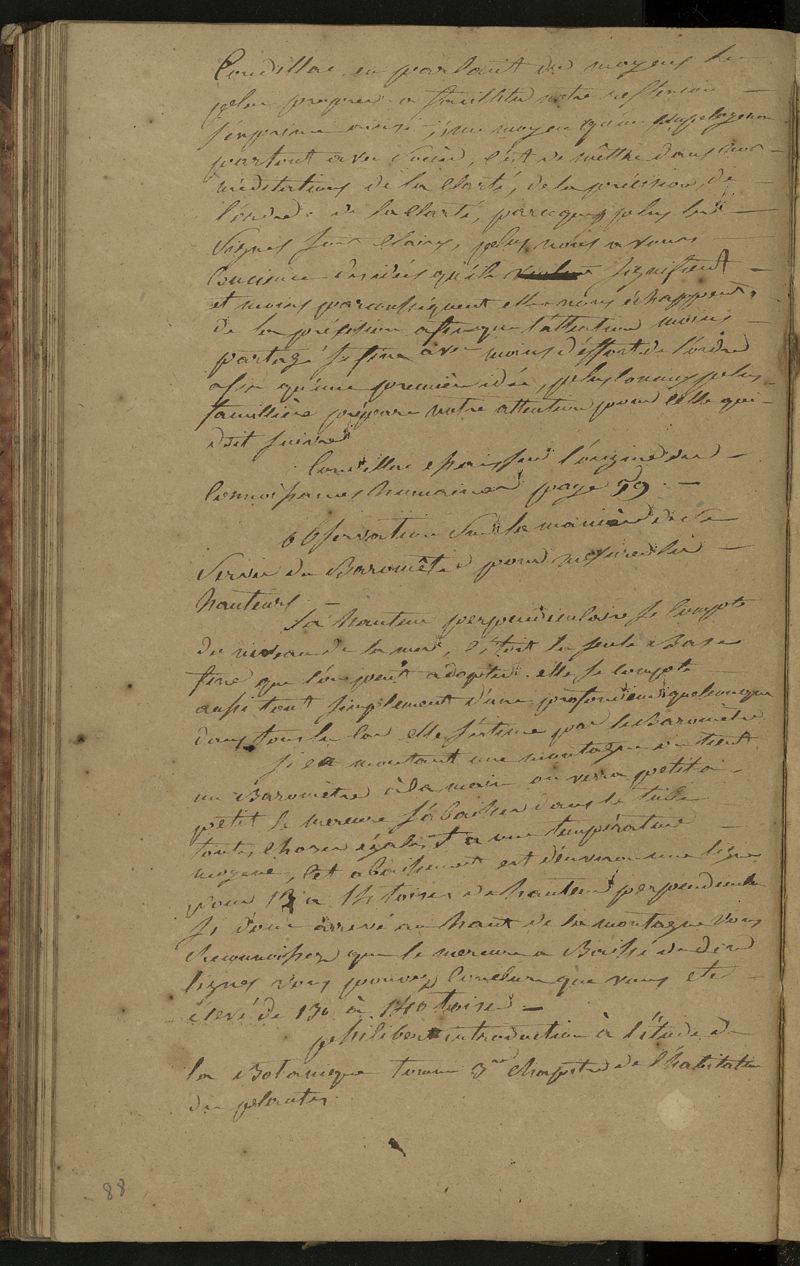 Condillac en parlant des moyens le
plus propres a faciliter notre reflexion
s'exprime ainsi, un moyen qu'on
partout avec succès, c'est de mêttre dans nos
méditations de la clarté, de la précision, de
l'ordre. de la clarté, parceque plus les
signes sont clairs, plus nous avons
conscience des idées qu'ils signifient
et moins par conséquent elles nous échappent.
de la précision afinque l'attention moins
partagé se fixe avec moins d'effort de l'ordre
afin qu'une première idée, plus connue plus
familliere prépare notre attention pour celle qui
doit suivre
Condillac l'origine des
connoissances humaines page 59. —
Observation sur la manière de se
servir du Baromêtre pour mesurer les
hauteurs
La hauteur perpendiculaire se compte
du niveau de la mer, c'étoit la seule Base
fixe que l'on peut adopter. elle se compte
aussi tout simplement d'une profondeur quelconque
dans tous les cas elle s'estime par le Baromètre
Si en montant une montagne on tient
un Baromètre à la main on verra petit a
petit le mercure s'abaisser dans le tube
toutes choses égales et a une température
moyene, cet abaissement est d'environ une ligne
pour 13 a 14 toises de hauteur perpendiculaire
Si donc arrivé au haut de la montagne vous
reconnoissez que le mercure a Baissé de dix
lignes vous pouvez conclure que vous ete
élevé de 130 à 140 toises —
philibert introduction à l'étude de
la Botanique tome 3me chapitre de l'habitation
des plantes.
88